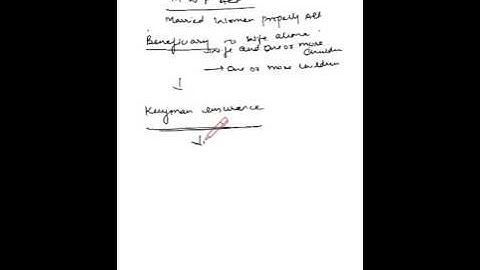 M W P Act
Married Women Property Act
Beneficiary → wife alone
→ wife and one or more
children
→ One or more children
↓
Keyman insurance
↓